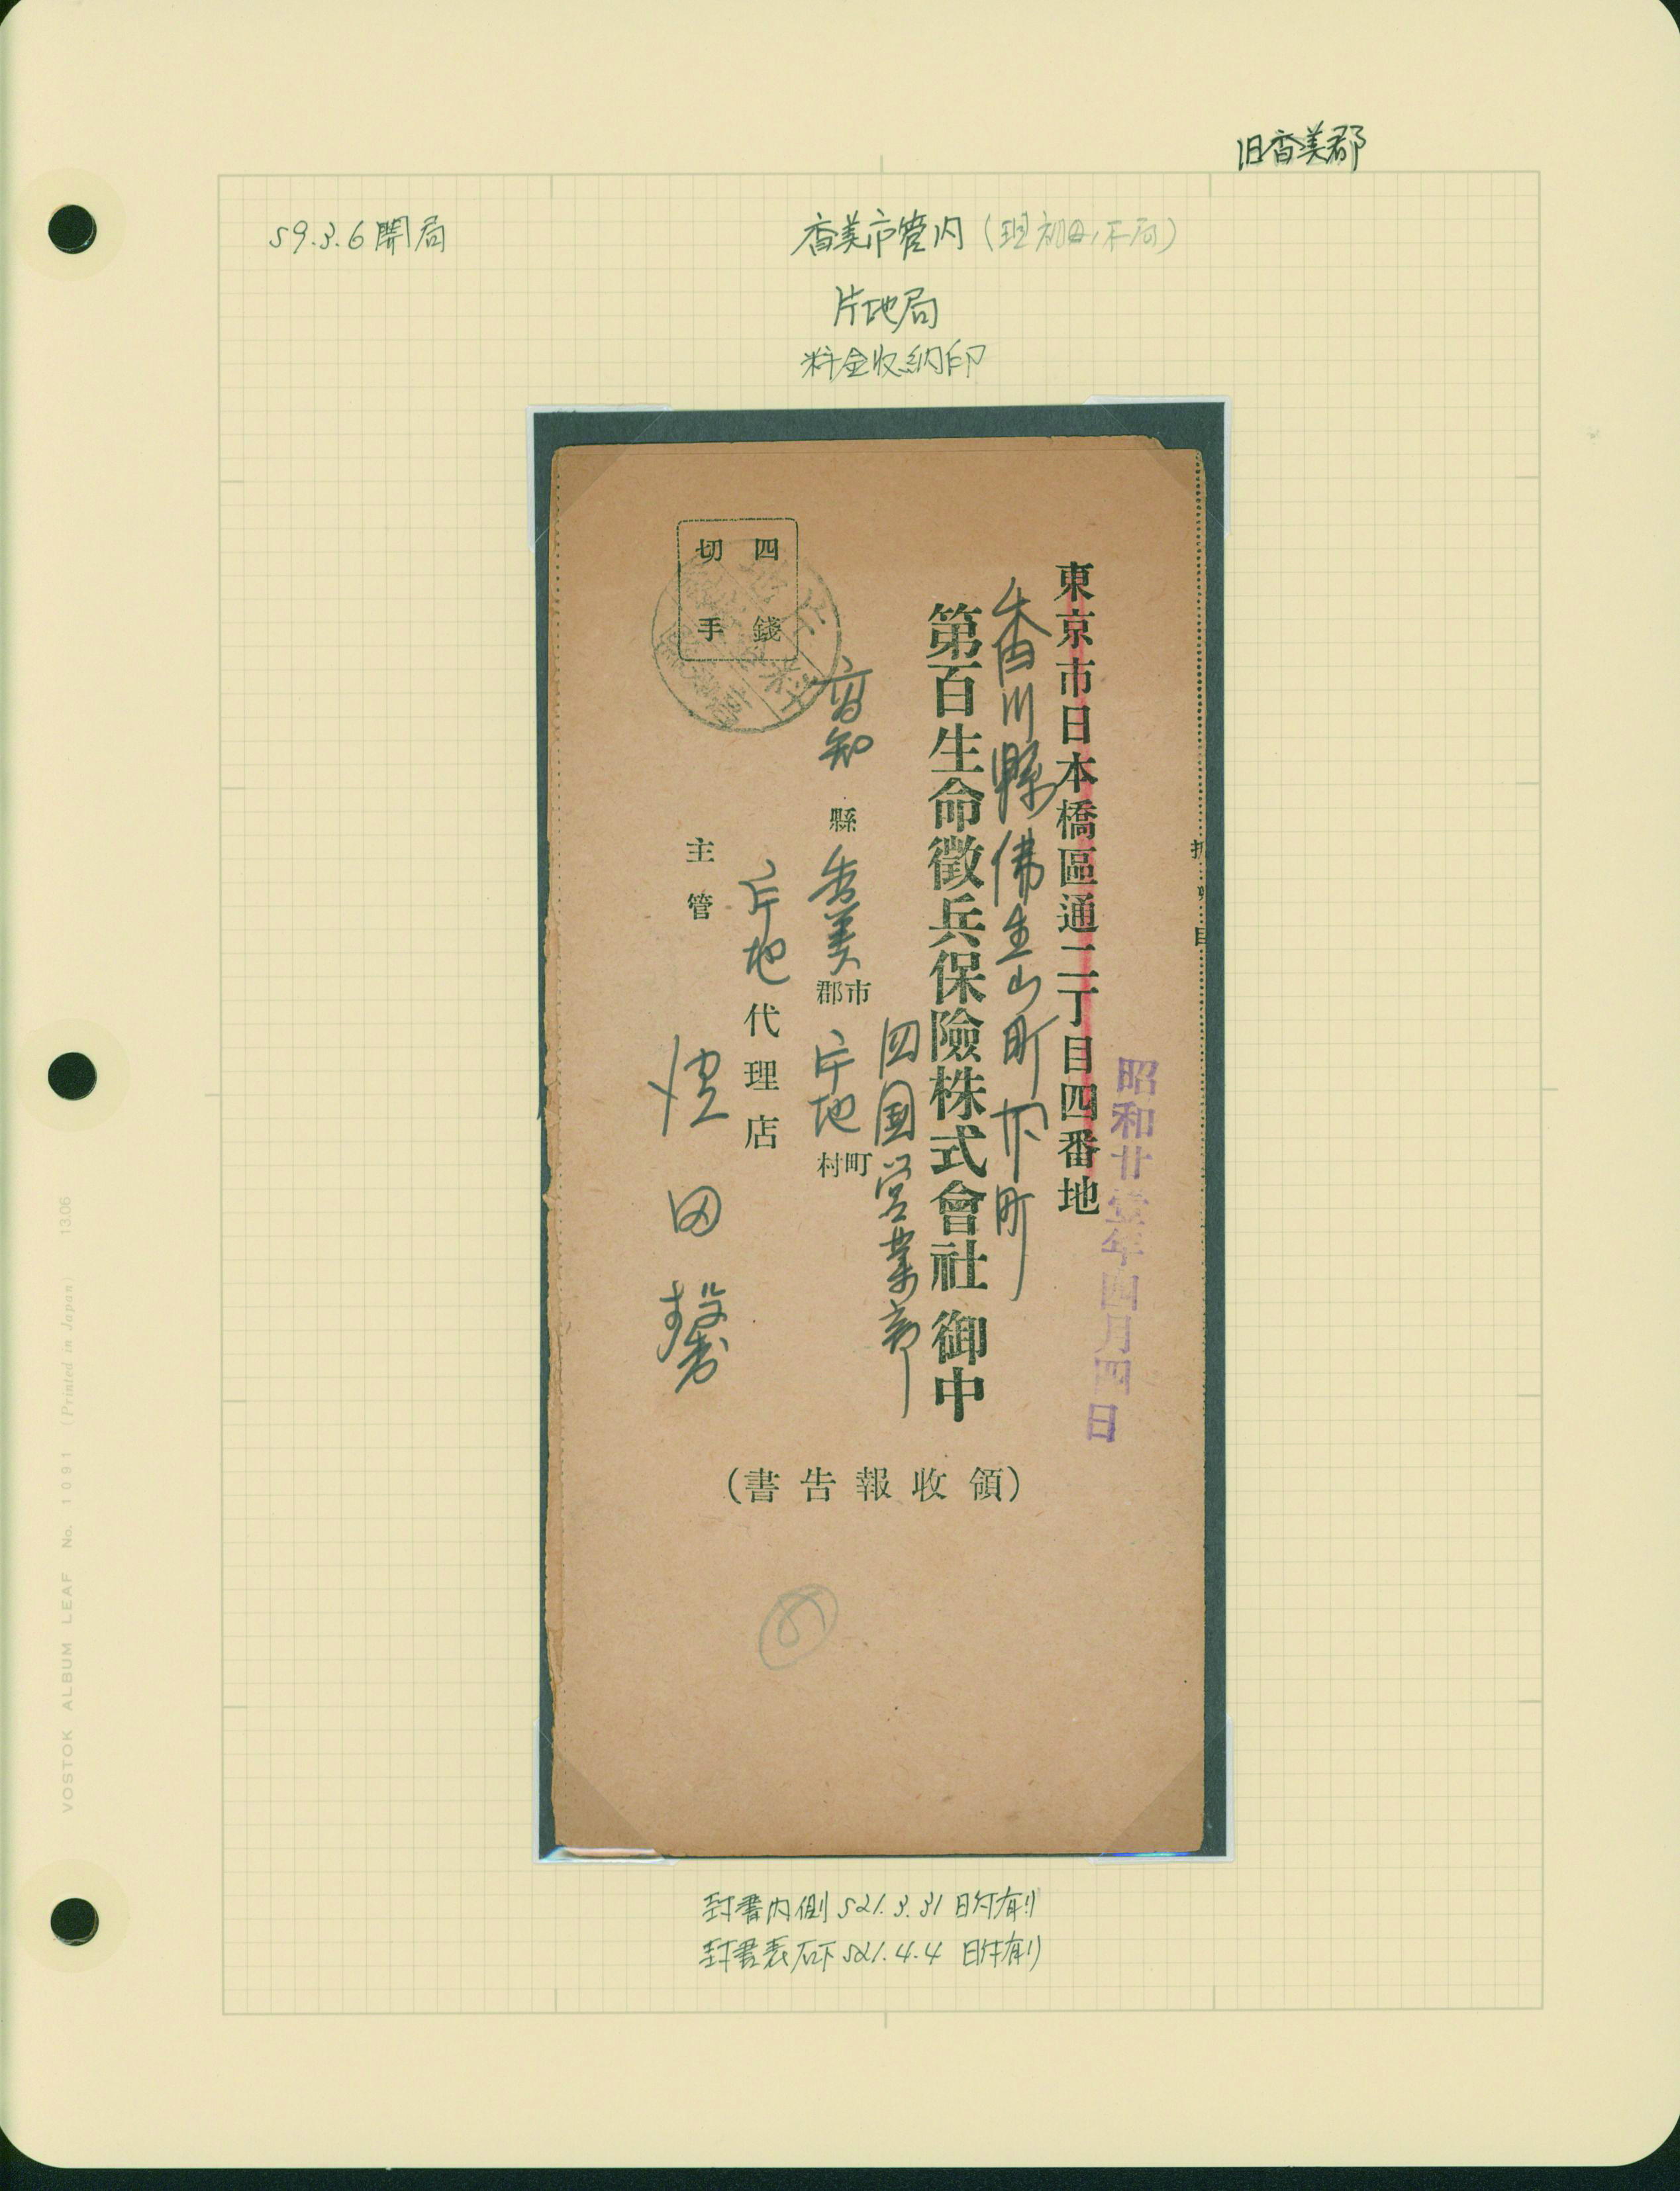 旧香美郡
S9.3.6開局
香美市管内
片地局
料金收納印
四錢
切手
東京市日本橋區通二丁目四番地
香川縣佛生山町下町
第百生命徵兵保險株式會社 御中
四国営業部
高知縣香美郡市片地村町
片地代理店
主管
昭和廿壹年四月四日
(領收報告書)
封書内側 S21.3.31 日付有り
封書表右下 S21.4.4 日付有り
VOSTOK ALBUM LEAF No. 1091 (Printed in Japan) 13.06